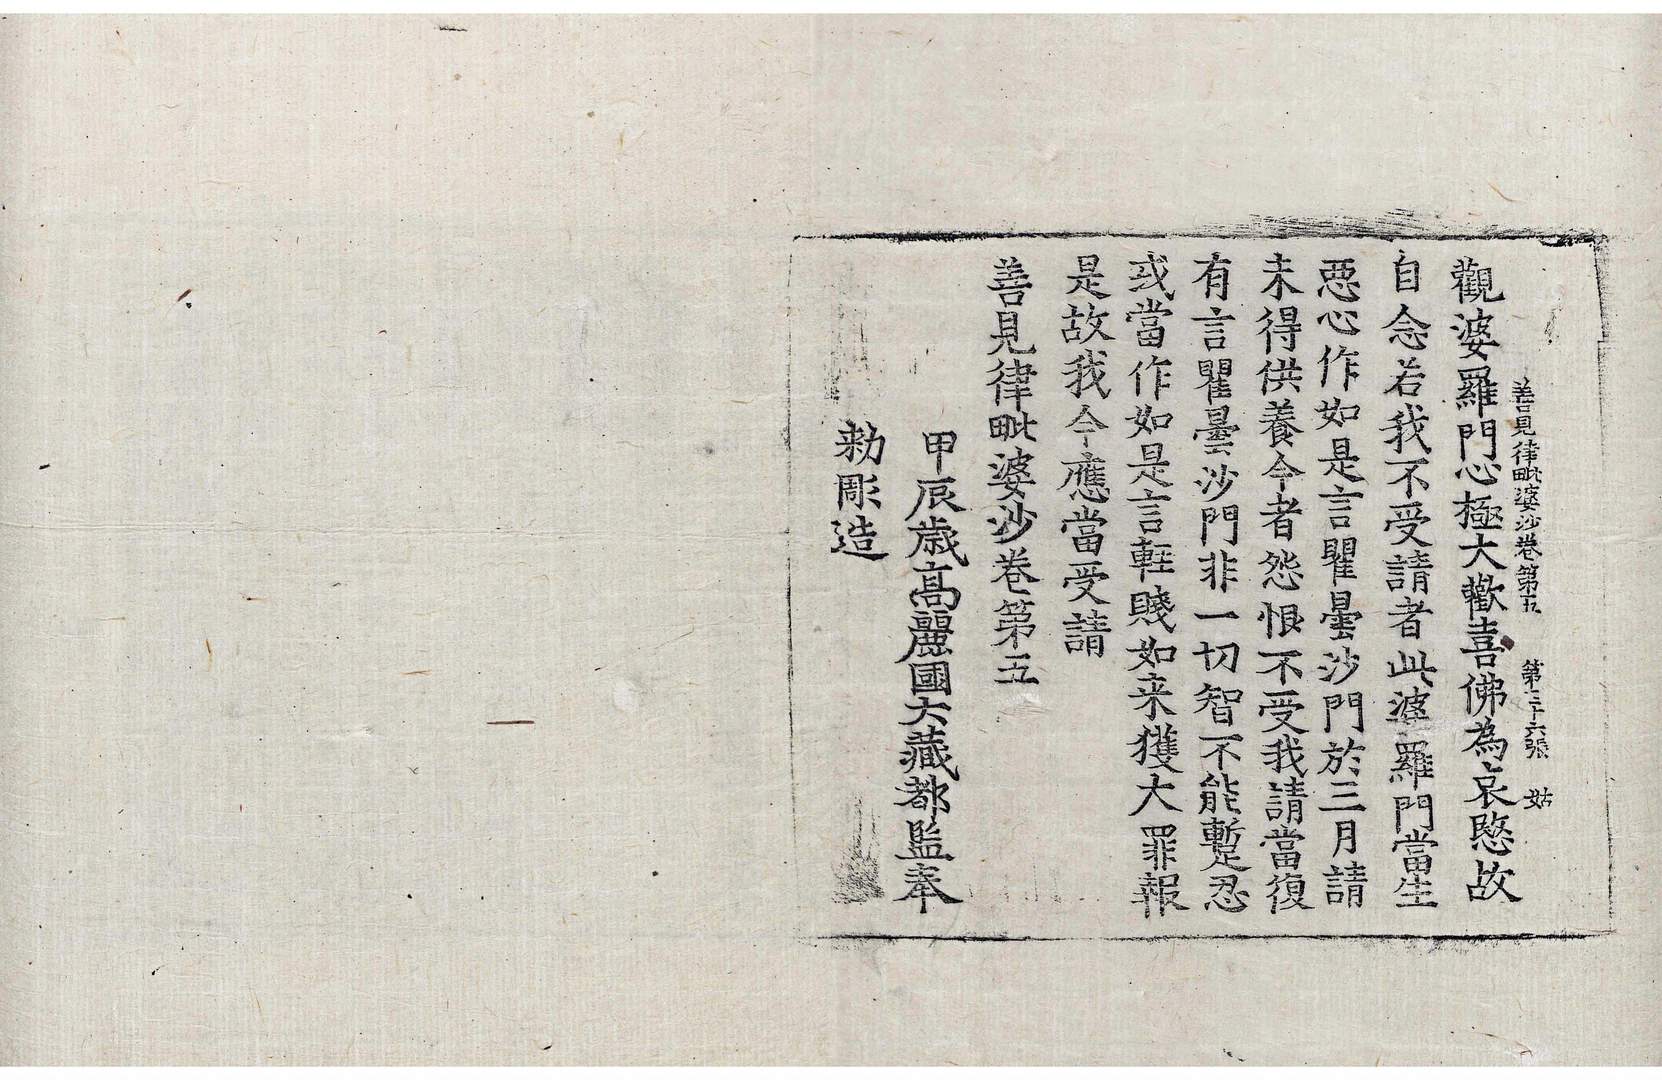 善見律毗婆沙卷第五　第三十六張　姑
觀婆羅門心極大歡喜佛為哀愍故
自念若我不受請者此婆羅門當生
惡心作如是言瞿曇沙門於三月請
未得供養今者怨恨不受我請當復
有言瞿曇沙門非一切智不能暫忍
或當作如是言輕賤如来獲大罪報
是故我今應當受請
善見律毗婆沙卷第五
甲辰歳高麗國大藏都監奉
勑彫造